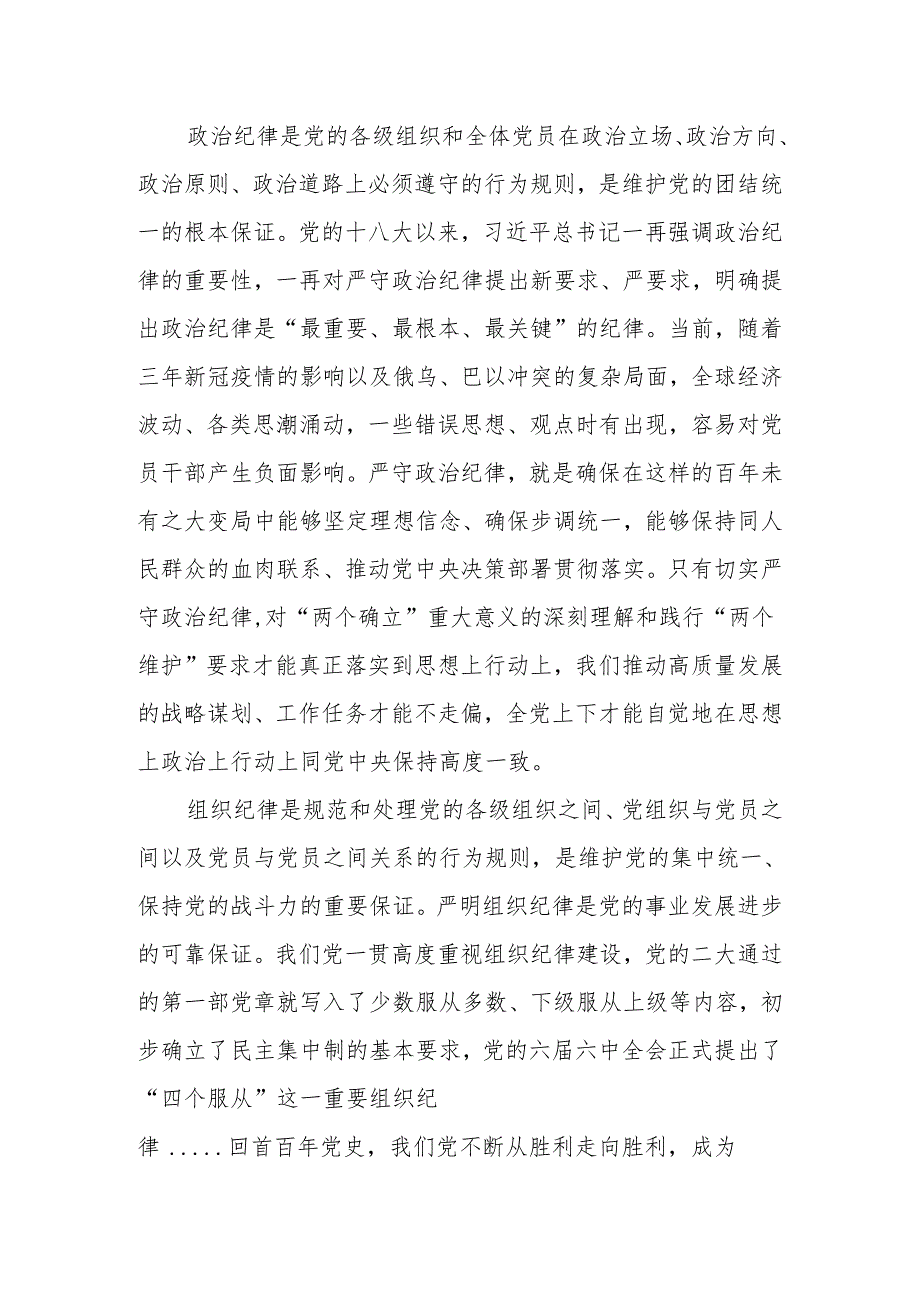 政治纪律是党的各级组织和全体党员在政治立场、政治方向、
政治原则、政治道路上必须遵守的行为规则，是维护党的团结统
一的根本保证。党的十八大以来，习近平总书记一再强调政治纪
律的重要性，一再对严守政治纪律提出新要求、严要求，明确提
出政治纪律是“最重要、最根本、最关键”的纪律。当前，随着
三年新冠疫情的影响以及俄乌、巴以冲突的复杂局面，全球经济
波动、各类思潮涌动，一些错误思想、观点时有出现，容易对党
员干部产生负面影响。严守政治纪律，就是确保在这样的百年未
有之大变局中能够坚定理想信念、确保步调统一，能够保持同人
民群众的血肉联系、推动党中央决策部署贯彻落实。只有切实严
守政治纪律,对“两个确立”重大意义的深刻理解和践行“两个
维护”要求才能真正落实到思想上行动上，我们推动高质量发展
的战略谋划、工作任务才能不走偏，全党上下才能自觉地在思想
上政治上行动上同党中央保持高度一致。
组织纪律是规范和处理党的各级组织之间、党组织与党员之
间以及党员与党员之间关系的行为规则，是维护党的集中统一、
保持党的战斗力的重要保证。严明组织纪律是党的事业发展进步
的可靠保证。我们党一贯高度重视组织纪律建设，党的二大通过
的第一部党章就写入了少数服从多数、下级服从上级等内容，初
步确立了民主集中制的基本要求，党的六届六中全会正式提出了
“四个服从”这一重要组织纪
律 .....回首百年党史，我们党不断从胜利走向胜利，成为